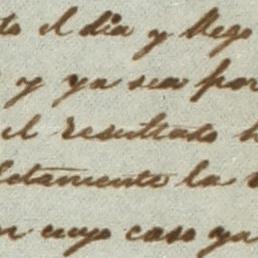 to el dia y llego
y ya sea por
el resultado
letamente la
en cuyo caso ya